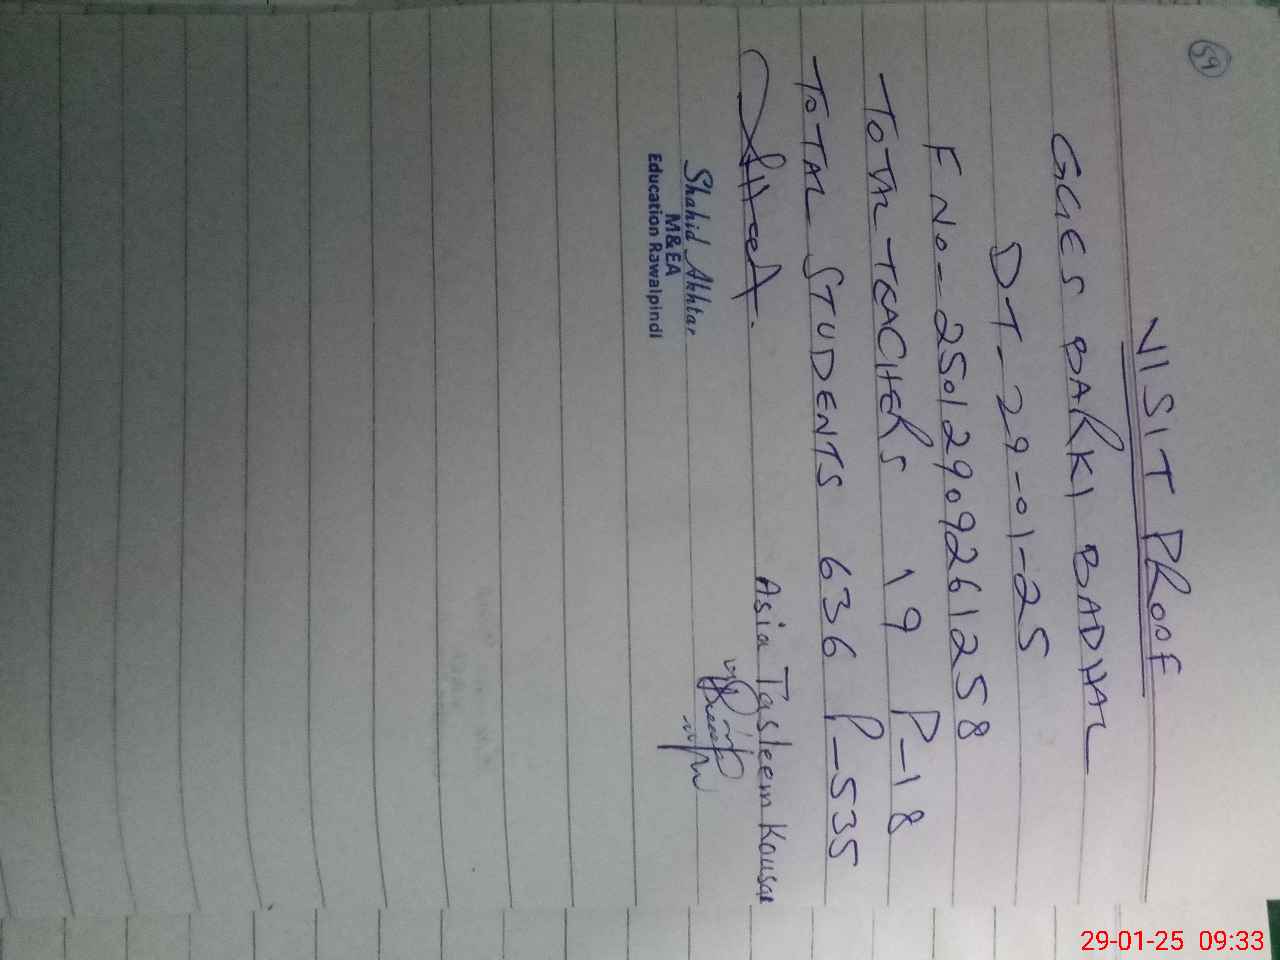 59
VISIT PROOF
GGES BARKI BADHAL
DT-29-01-25
F No-25012909261258
TOTAL TEACHERS 19 P-18
TOTAL STUDENTS 636 P-535
Asia Tasleem Kousar
Shahid Akhtar
M&EA
Education Rawalpindi
29-01-25 09:33